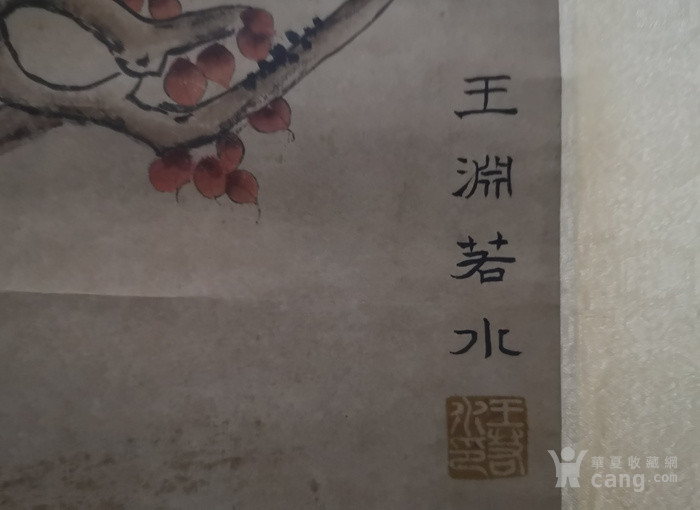 王淵若水
王若水印
華夏收藏網
cang.com